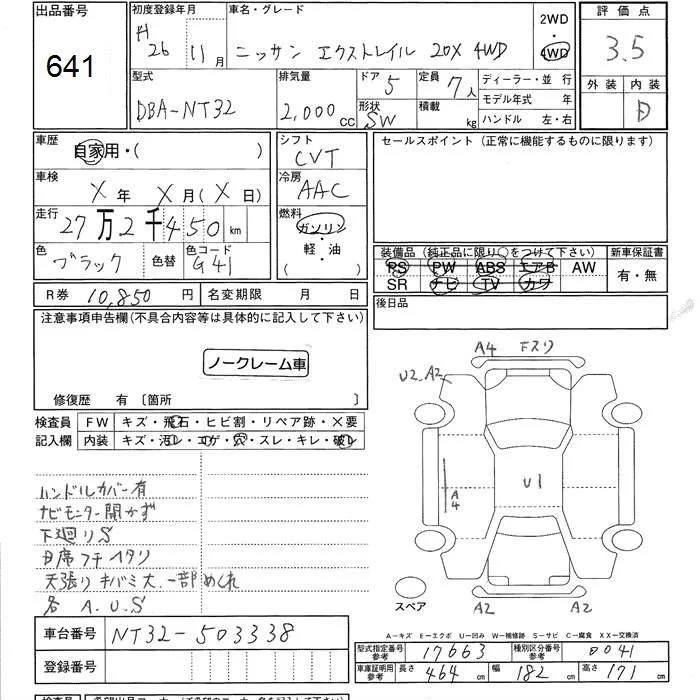 出品番号 641
初度登録年月 H26 11月
車名・グレード ニッサン エクストレイル 20X 4WD
2WD
4WD
評価点 3.5
外装 内装 D
型式 DBA-NT32
排気量 2,000cc
ドア 5
形状 SW
定員 7人
積載 kg
ディーラー・並行
モデル年式 年
ハンドル 左・右
車歴 自家用・( )
車検 X年 X月(X日)
走行 27万2千450km
色 ブラック 色替 色コード G41
シフト CVT
冷房 AAC
燃料 ガソリン・軽油
セールスポイント(正常に機能するものに限ります)
装備品(純正品に限り○をつけて下さい)
PS PW ABS エアB AW
SR ナビ TV カワ
新車保証書
有・無
後日品
R券 10,850円
名変期限 月 日
注意事項申告欄(不具合内容等は具体的に記入して下さい)
ノークレーム車
修復歴 有〔箇所 〕
検査員記入欄
FW キズ・飛石・ヒビ割・リペア跡・X要
内装 キズ・汚レ・コゲ・穴・スレ・キレ・破レ
ハンドルカバー有
ナビモニター開かず
下廻りS
D席フチヘタリ
天張りキバミ大.一部めくれ
各 A.U.S
A4 Fスリ
U2.A2
U1
A4
A2 A2
スペア
A-キズ E-エクボ U-凹み W-補修跡 S-サビ C-腐食 XX-交換済
車台番号 NT32-503338
登録番号
型式指定番号参考 17663
種別区分番号参考 0041
車庫証明用参考 長さ 464cm 幅 182cm 高さ 171cm